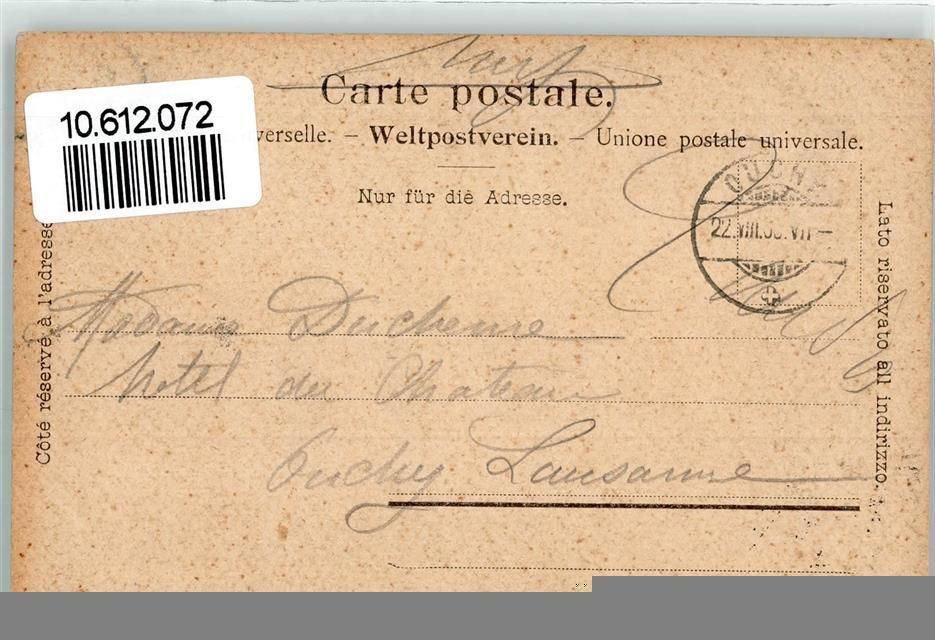 Carte postale.
10.612.072
verselle. – Weltpostverein. – Unione postale universale.
Nur für die Adresse.
OUCHY
22.VIII. VII–
Côté réservé à l'adresse
Lato riservato all indirizzo.
Madame Duchenne
hotel du Chateau
Ouchy Lausanne